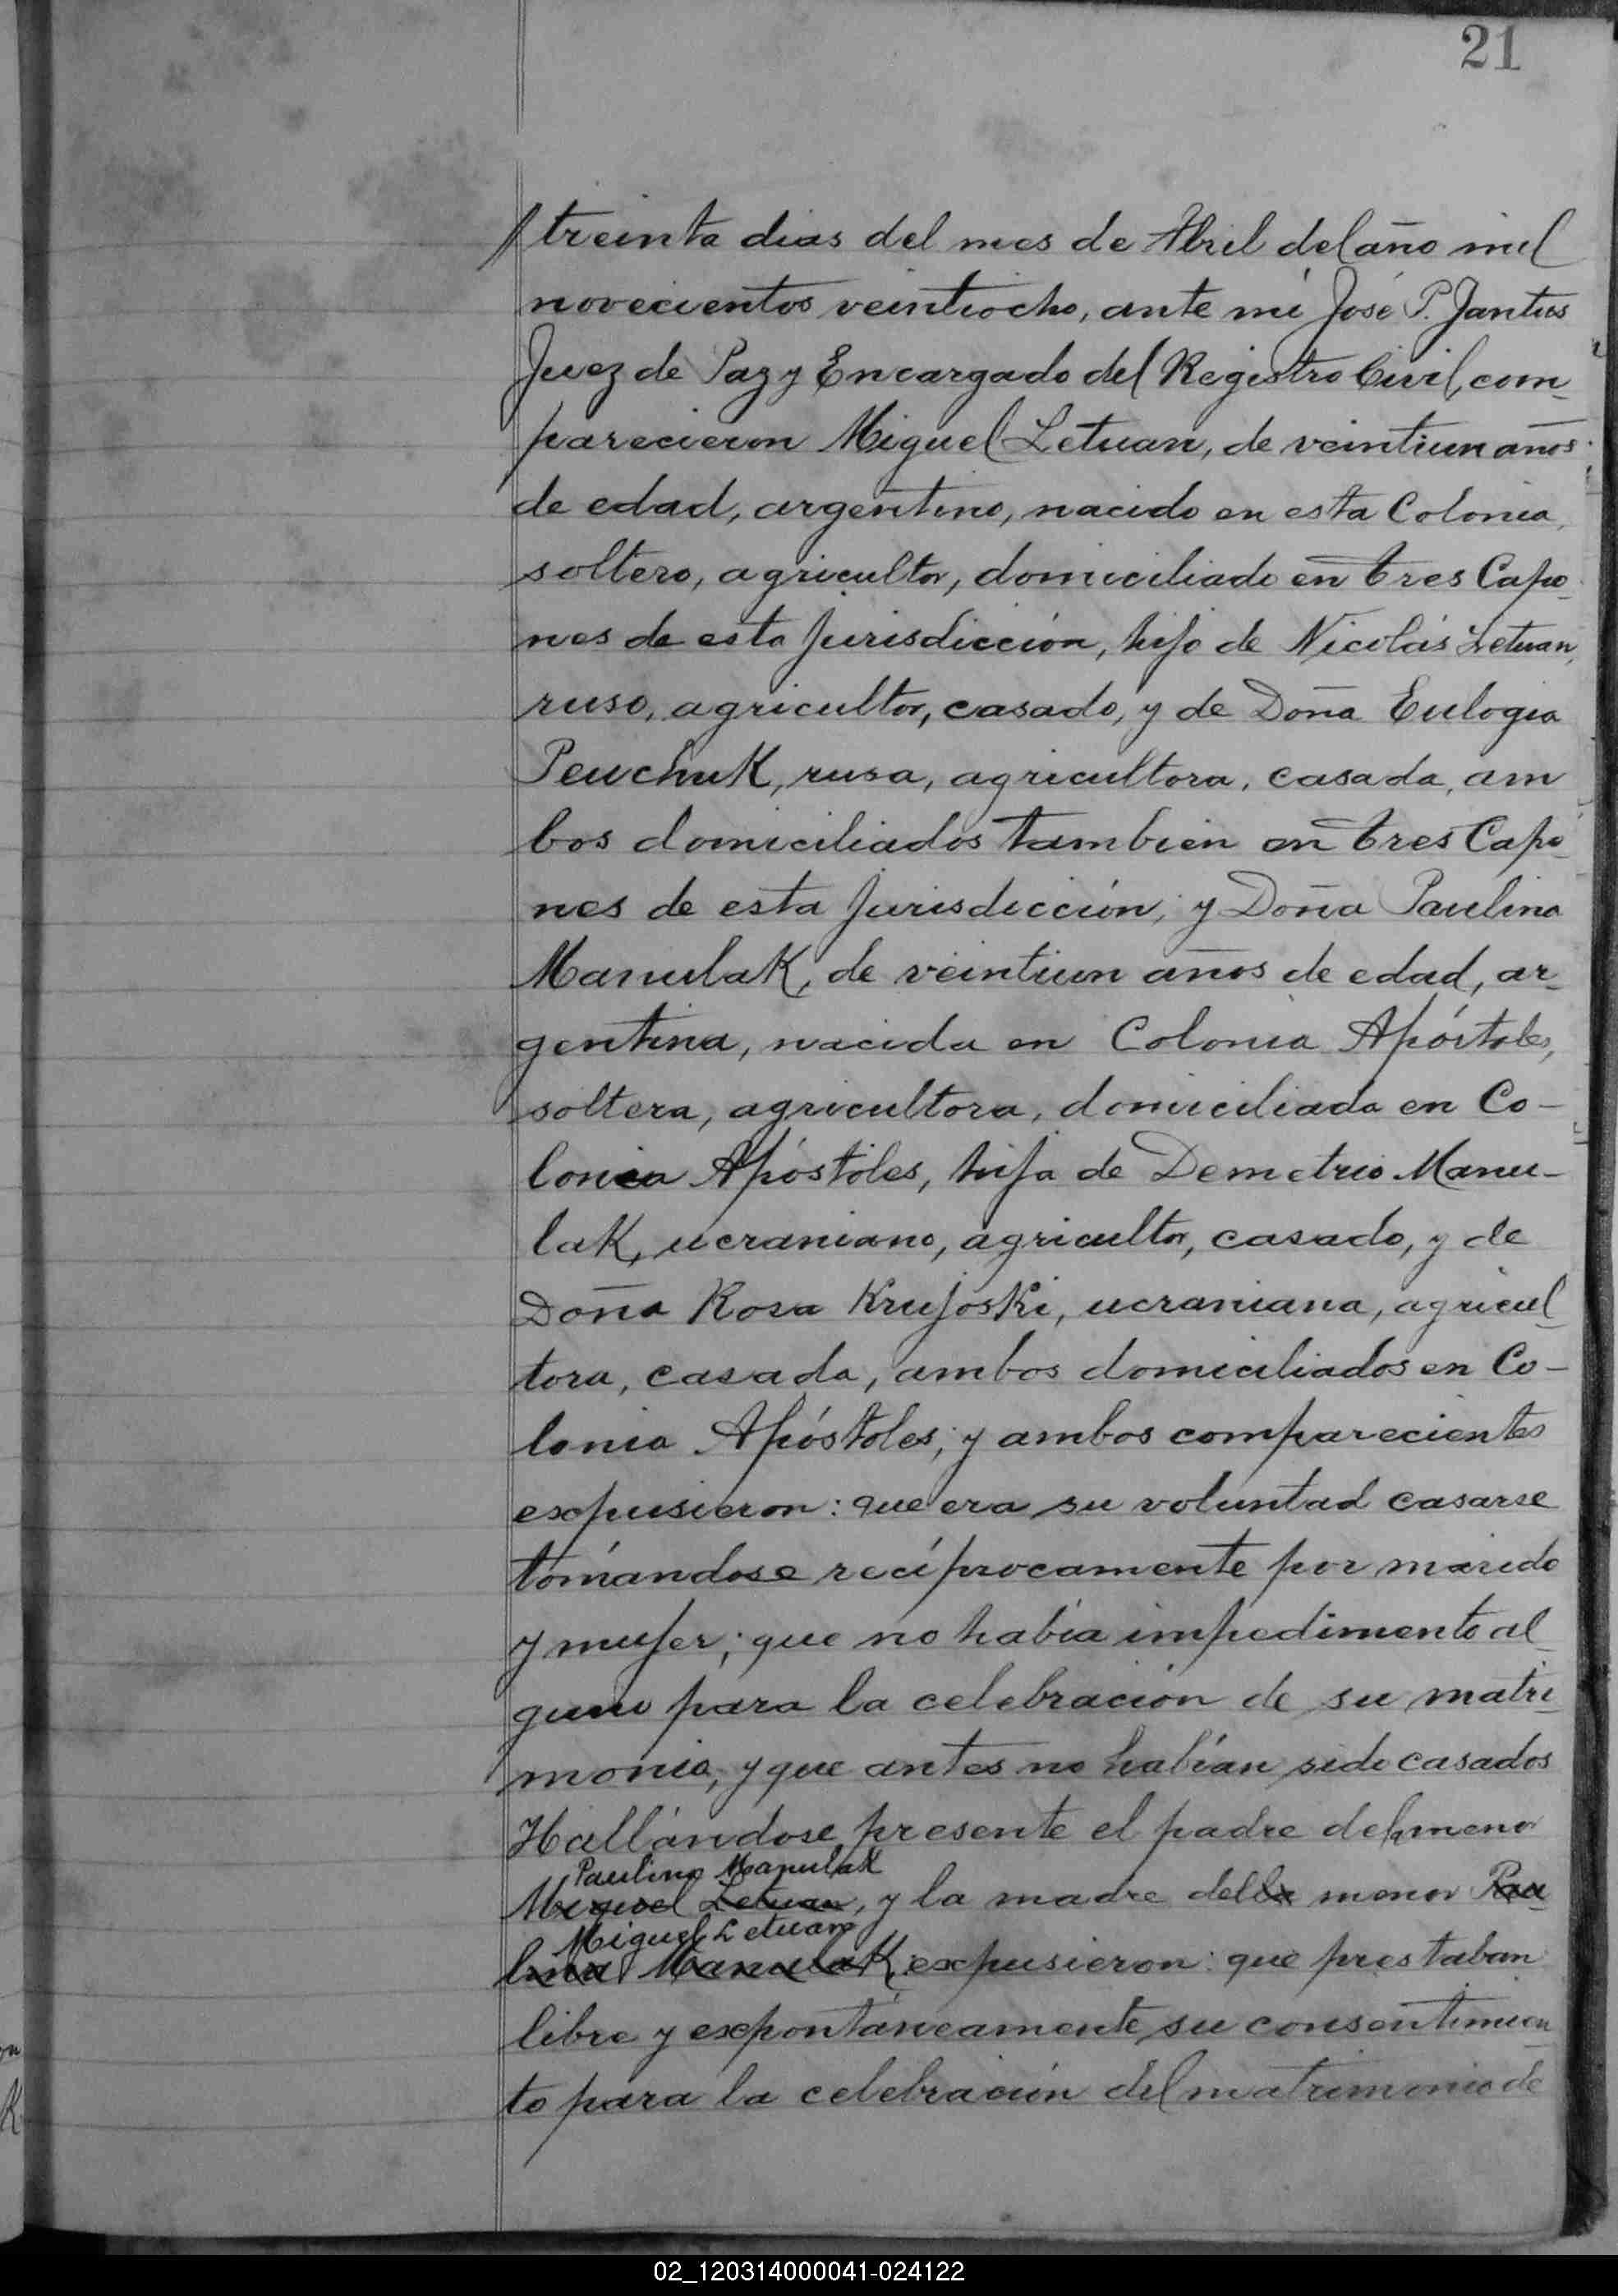 21
treinta dias del mes de Abril del año mil
novecientos veintiocho, ante mí José P. Jantus
Juez de Paz y Encargado del Registro Civil, com-
parecieron Miguel Letuan, de veintiun años
de edad, argentino, nacido en esta Colonia,
soltero, agricultor, domiciliado en Tres Capo-
nes de esta Jurisdicción, hijo de Nicolás Letuan,
ruso, agricultor, casado, y de Doña Eulogia
Pewchuk, rusa, agricultora, casada, am
bos domiciliados tambien en Tres Capo-
nes de esta Jurisdicción; y Doña Paulina
Manulak, de veintiun años de edad, ar-
gentina, nacida en Colonia Apóstoles,
soltera, agricultora, domiciliada en Co-
lonia Apóstoles, hija de Demetrio Manu-
lak, ucraniano, agricultor, casado, y de
Doña Rosa Krujoski, ucraniana, agricul-
tora, casada, ambos domiciliados en Co-
lonia Apóstoles; y ambos comparecientes
expusieron: que era su voluntad casarse
tomándose recíprocamente por marido
y mujer; que no había impedimento al-
guno para la celebración de su matri-
monio; y que antes no habían sido casados
Hallándose presente el padre de la menor
Paulina Manulak
Miguel Letuan, y la madre della menor Pau-
Miguel Letuan
lina Manulak, expusieron: que prestaban
libre y expontáneamente su consentimien
to para la celebración del matrimonio de
02_120314000041-024122